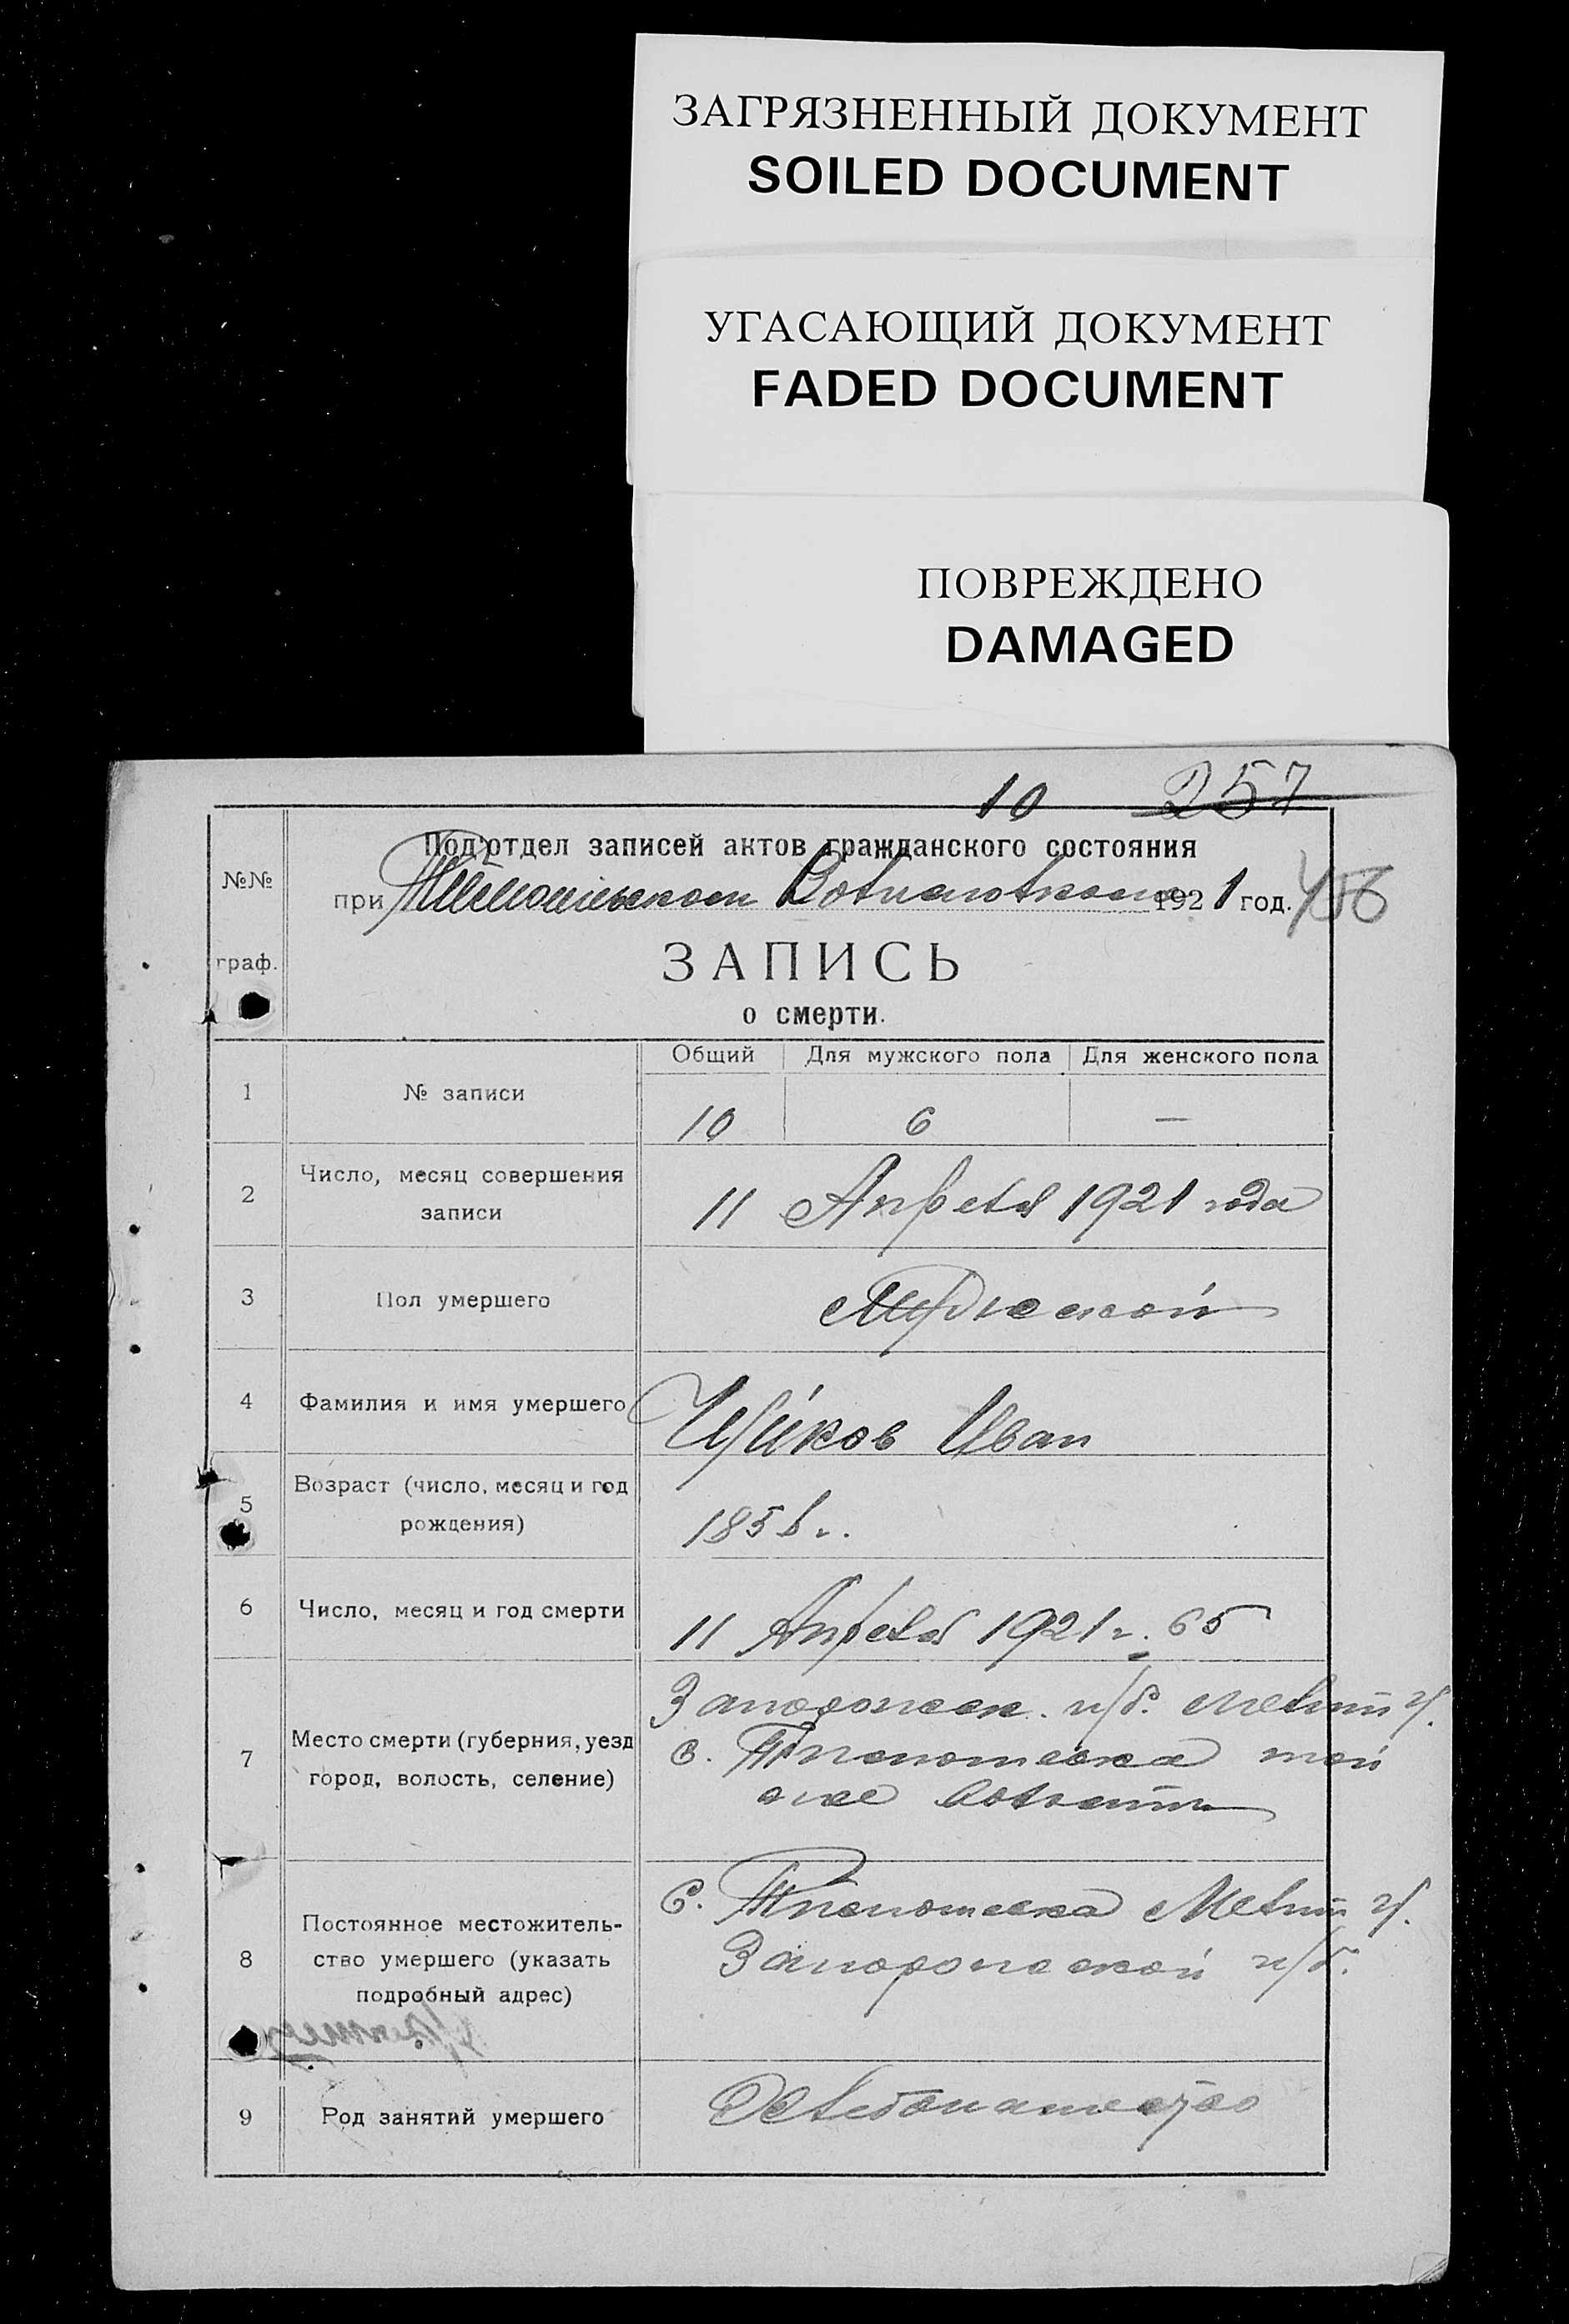 ЗАГРЯЗНЕННЫЙ ДОКУМЕНТ
SOILED DOCUMENT
УГАСАЮЩИЙ ДОКУМЕНТ
FADED DOCUMENT
ПОВРЕЖДЕНО
DAMAGED
10 257
№№ граф.
Подотдел записей актов гражданского состояния
при 1921 год. 456
ЗАПИСЬ
о смерти.
Общий Для мужского пола Для женского пола
1 № записи 10 6 —
2 Число, месяц совершения
записи
11 Апреля 1921 года
3 Пол умершего Мужской
4 Фамилия и имя умершего Иван
5 Возраст (число, месяц и год
рождения)
1856 г.
6 Число, месяц и год смерти 11 Апреля 1921 г. 65
7 Место смерти (губерния, уезд
город, волость, селение)
Запорожск. губ. Мелит у.
с. той
же волости
8 Постоянное местожитель-
ство умершего (указать
подробный адрес)
С. Мелит у.
Запорожской губ.
9 Род занятий умершего Хлебопашество